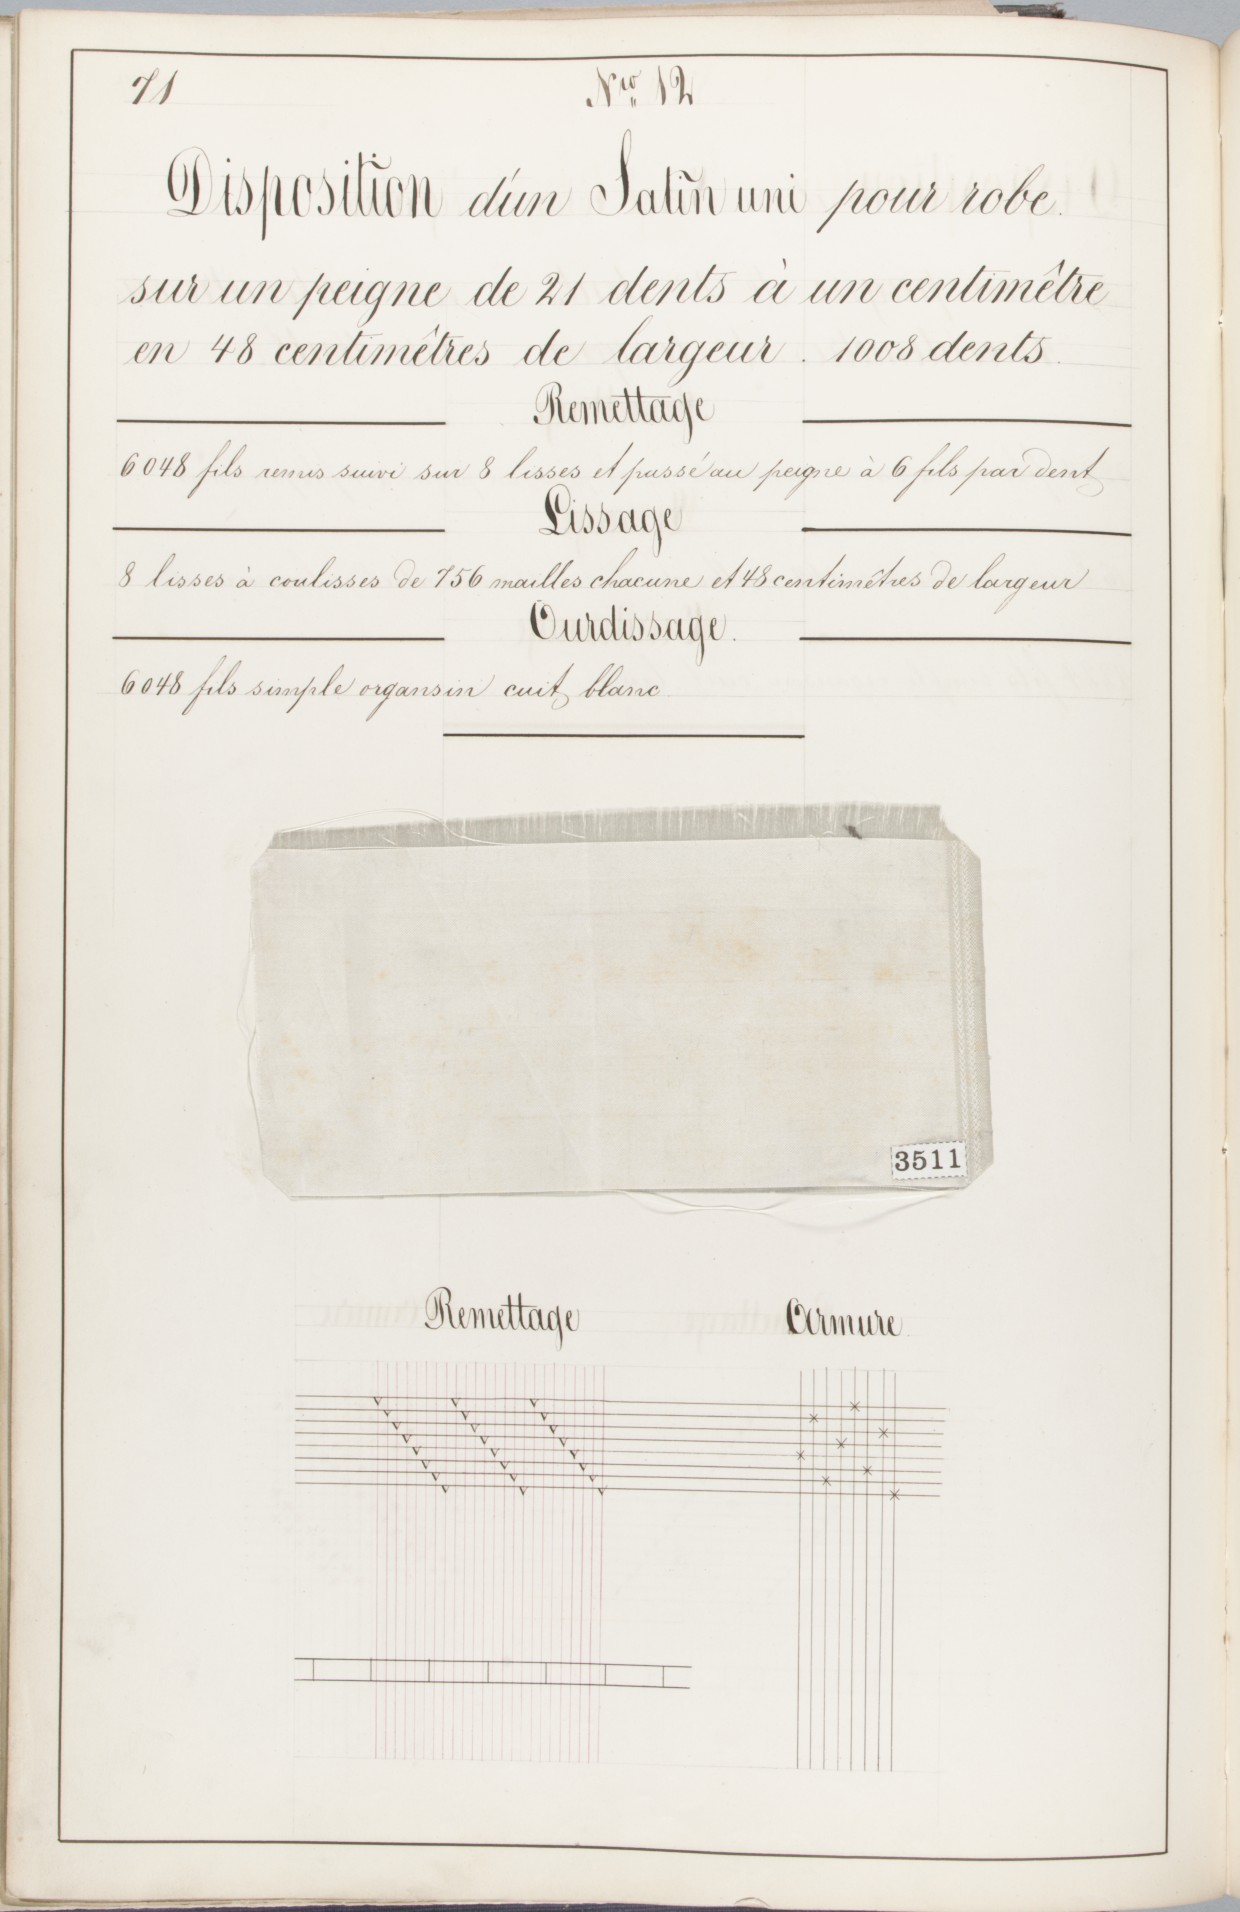 71
Nro 12
Disposition d'un Satin uni pour robe.
sur un peigne de 21 dents à un centimêtre
en 48 centimêtres de largeur. 1008 dents.
Remettage
6048 fils remis suivi sur 8 lisses et passé au peigne à 6 fils par dent
Lissage
8 lisses à coulisses de 756 mailles chacune et 48 centimêtres de largeur
Ourdissage.
6048 fils simple organsin cuit blanc
3511
Remettage
Armure